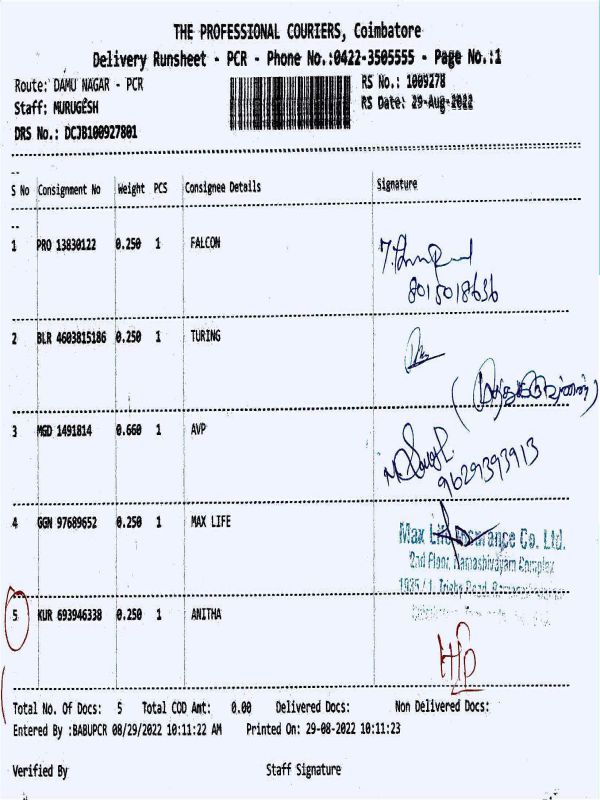 THE PROFESSIONAL COURIERS, Coimbatore
Delivery Runsheet - PCR - Phone No.:0422-3505555 - Page No.:1
Route: DAMU NAGAR - PCR
RS No.: 1009278
Staff: MURUGESH
RS Date: 29-Aug-2022
DRS No.: DCJB100927801
S No Consignment No Weight PCS Consignee Details Signature
1 PRO 13830122 0.250 1 FALCON
8015018636
2 BLR 4603815186 0.250 1 TURING
3 MGD 1491814 0.660 1 AVP
9629393913
4 GGN 97689652 0.250 1 MAX LIFE
Max Life Insurance Co. Ltd.
2nd Floor, Namashivayam Complex
5 KUR 693946338 0.250 1 ANITHA
Total No. Of Docs: 5 Total COD Amt: 0.00 Delivered Docs: Non Delivered Docs:
Entered By :BABUPCR 08/29/2022 10:11:22 AM Printed On: 29-08-2022 10:11:23
Verified By Staff Signature